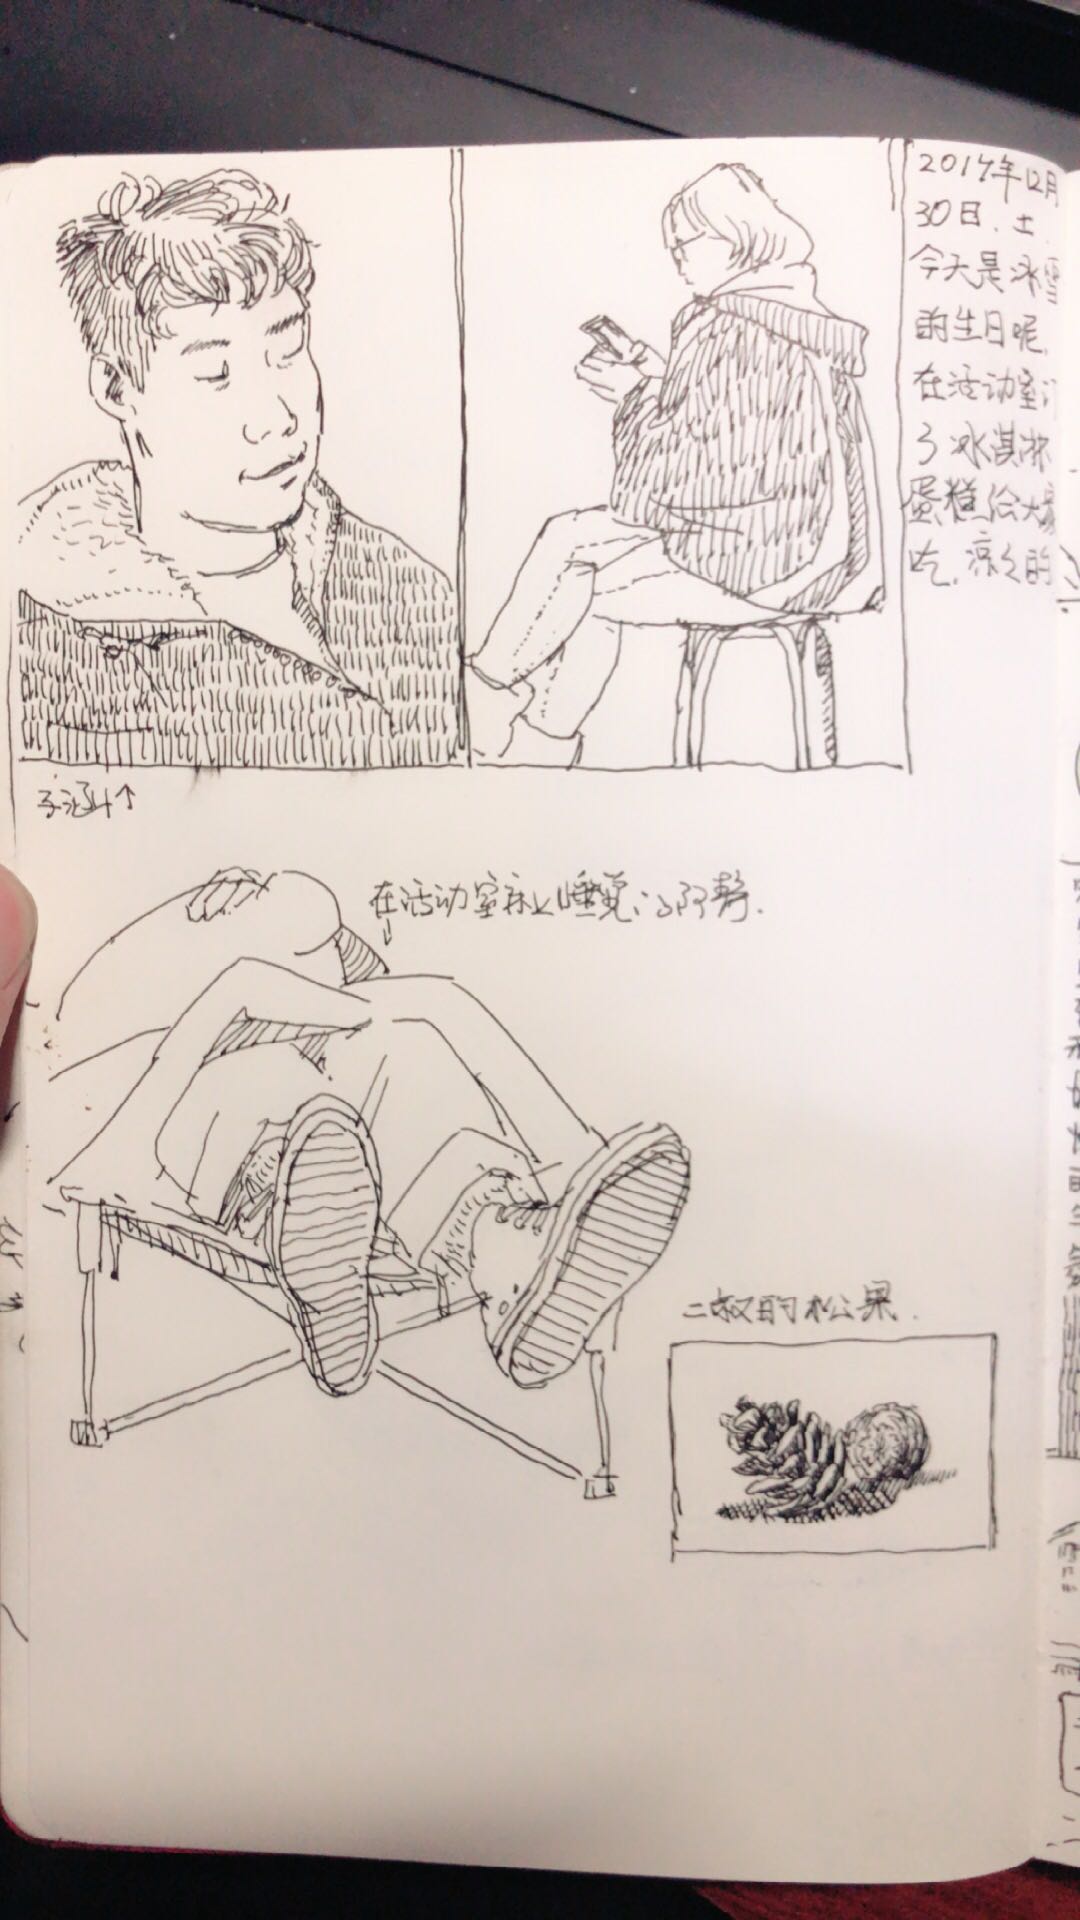 2017年12月
30日、土、
今天是冰雪
的生日呢、
在活动室订
了冰淇淋
蛋糕给大家
吃、凉凉的
子涵↑
在活动室床上睡觉的阿静.
二叔的松果.